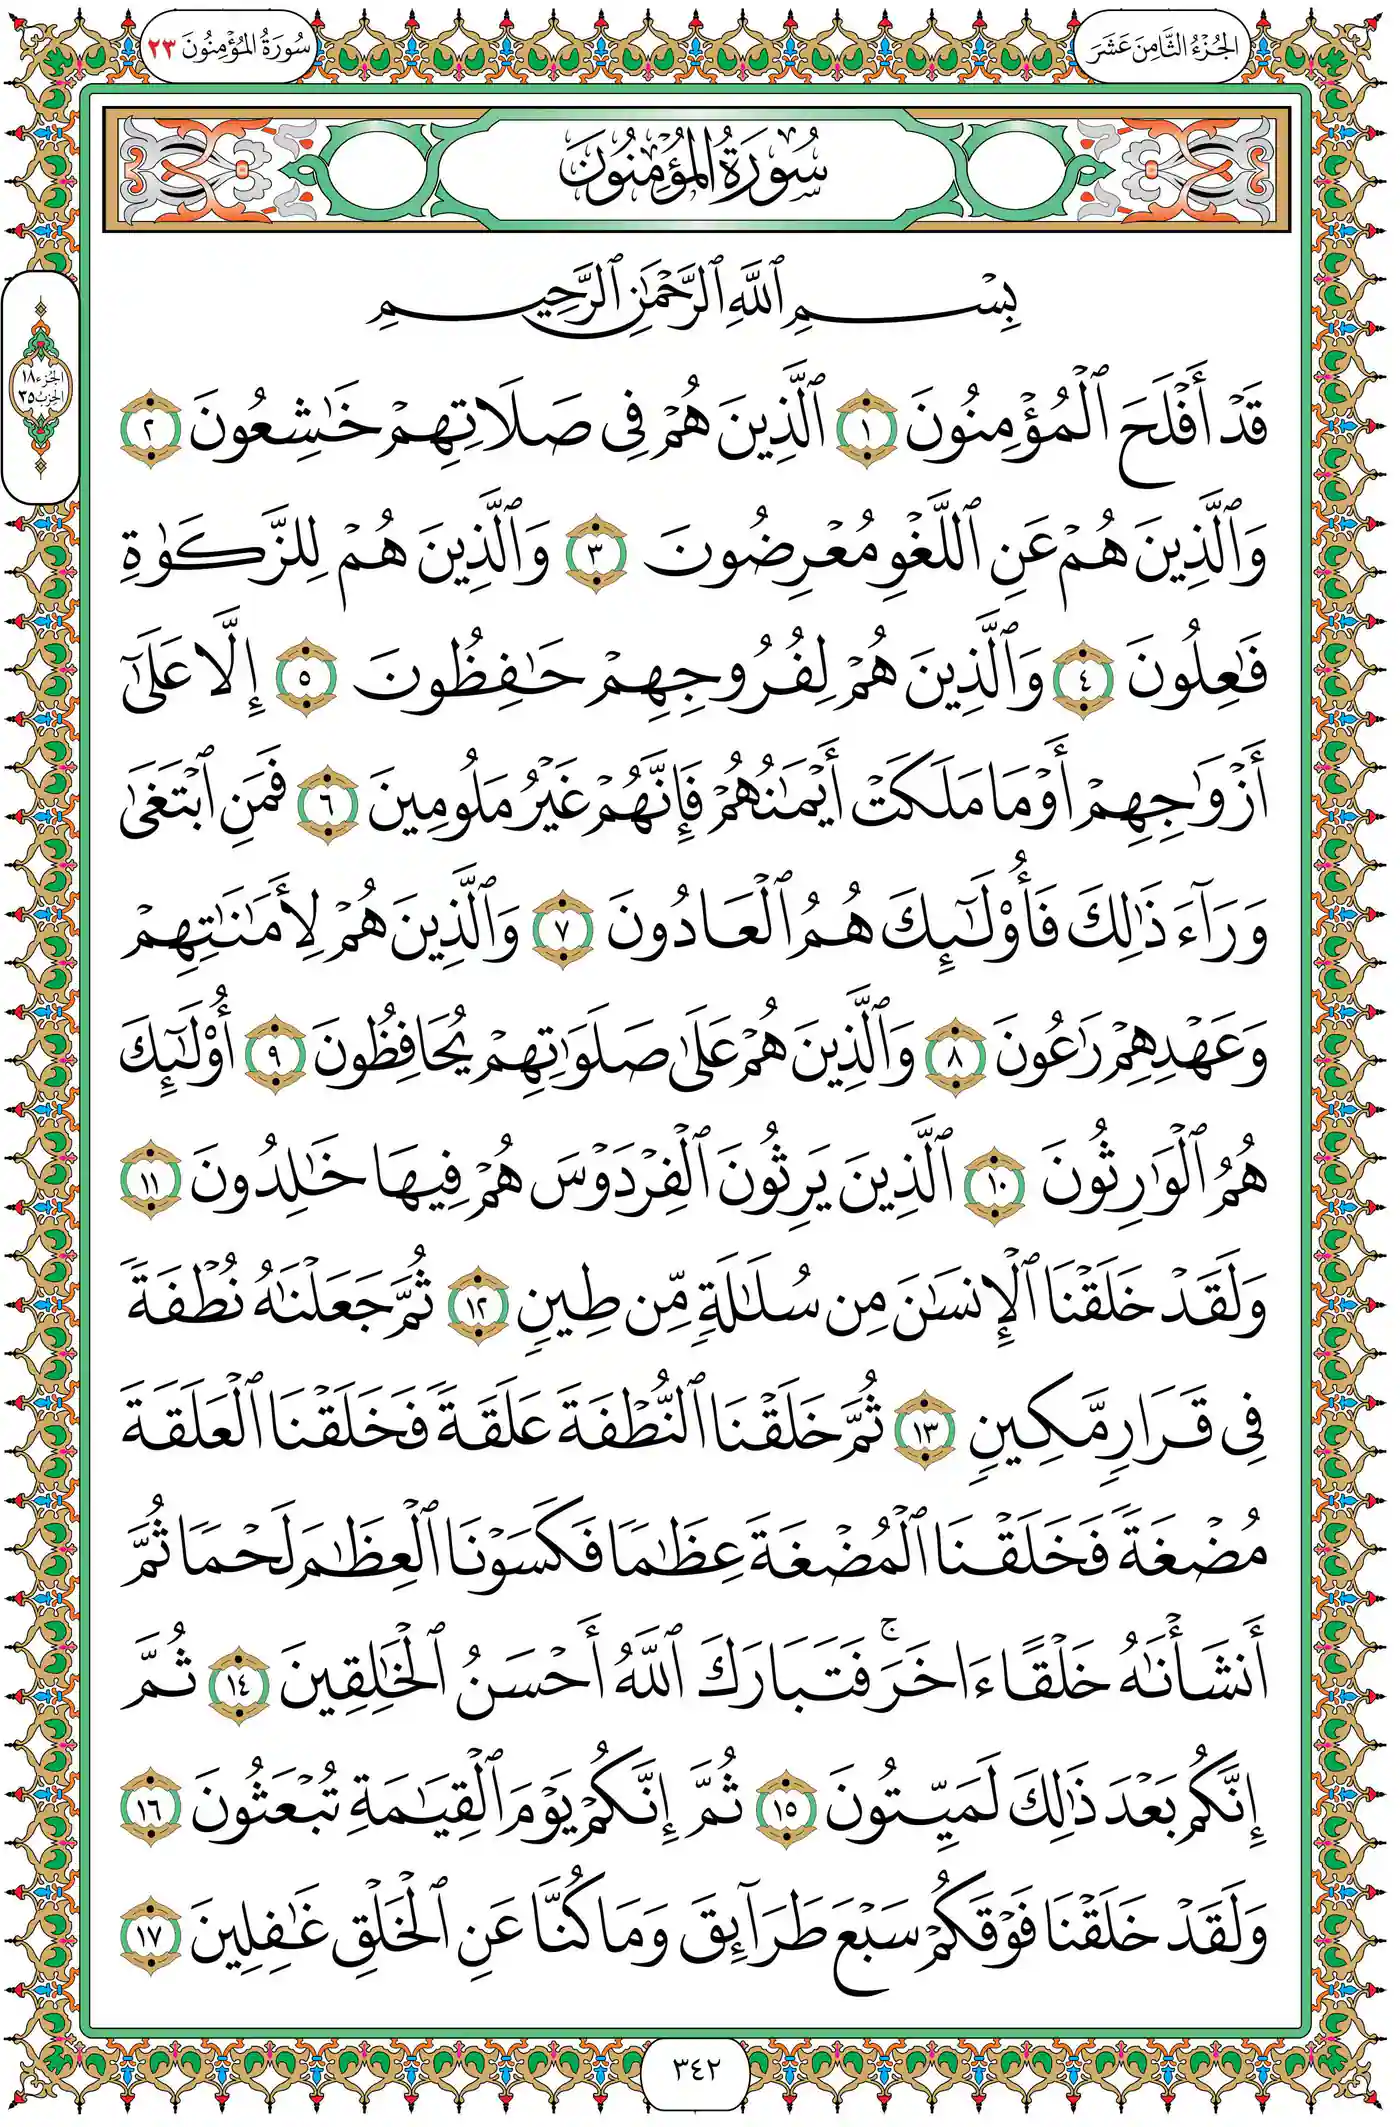 الجُزْءُ الثَّامِنَ عَشَرَ
سُورَةُ المُؤْمِنُونَ ٢٣
سُورَةُ المُؤْمِنُونَ
الجُزْء ١٨
الحِزْب ٣٥
بِسْمِ ٱللَّهِ ٱلرَّحْمَٰنِ ٱلرَّحِيمِ
قَدْ أَفْلَحَ ٱلْمُؤْمِنُونَ ١ ٱلَّذِينَ هُمْ فِى صَلَاتِهِمْ خَٰشِعُونَ ٢
وَٱلَّذِينَ هُمْ عَنِ ٱللَّغْوِ مُعْرِضُونَ ٣ وَٱلَّذِينَ هُمْ لِلزَّكَوٰةِ
فَٰعِلُونَ ٤ وَٱلَّذِينَ هُمْ لِفُرُوجِهِمْ حَٰفِظُونَ ٥ إِلَّا عَلَىٰٓ
أَزْوَٰجِهِمْ أَوْ مَا مَلَكَتْ أَيْمَٰنُهُمْ فَإِنَّهُمْ غَيْرُ مَلُومِينَ ٦ فَمَنِ ٱبْتَغَىٰ
وَرَآءَ ذَٰلِكَ فَأُو۟لَٰٓئِكَ هُمُ ٱلْعَادُونَ ٧ وَٱلَّذِينَ هُمْ لِأَمَٰنَٰتِهِمْ
وَعَهْدِهِمْ رَٰعُونَ ٨ وَٱلَّذِينَ هُمْ عَلَىٰ صَلَوَٰتِهِمْ يُحَافِظُونَ ٩ أُو۟لَٰٓئِكَ
هُمُ ٱلْوَٰرِثُونَ ١٠ ٱلَّذِينَ يَرِثُونَ ٱلْفِرْدَوْسَ هُمْ فِيهَا خَٰلِدُونَ ١١
وَلَقَدْ خَلَقْنَا ٱلْإِنسَٰنَ مِن سُلَٰلَةٍ مِّن طِينٍ ١٢ ثُمَّ جَعَلْنَٰهُ نُطْفَةً
فِى قَرَارٍ مَّكِينٍ ١٣ ثُمَّ خَلَقْنَا ٱلنُّطْفَةَ عَلَقَةً فَخَلَقْنَا ٱلْعَلَقَةَ
مُضْغَةً فَخَلَقْنَا ٱلْمُضْغَةَ عِظَٰمًا فَكَسَوْنَا ٱلْعِظَٰمَ لَحْمًا ثُمَّ
أَنشَأْنَٰهُ خَلْقًا ءَاخَرَ ۚ فَتَبَارَكَ ٱللَّهُ أَحْسَنُ ٱلْخَٰلِقِينَ ١٤ ثُمَّ
إِنَّكُم بَعْدَ ذَٰلِكَ لَمَيِّتُونَ ١٥ ثُمَّ إِنَّكُمْ يَوْمَ ٱلْقِيَٰمَةِ تُبْعَثُونَ ١٦
وَلَقَدْ خَلَقْنَا فَوْقَكُمْ سَبْعَ طَرَآئِقَ وَمَا كُنَّا عَنِ ٱلْخَلْقِ غَٰفِلِينَ ١٧
٣٤٢